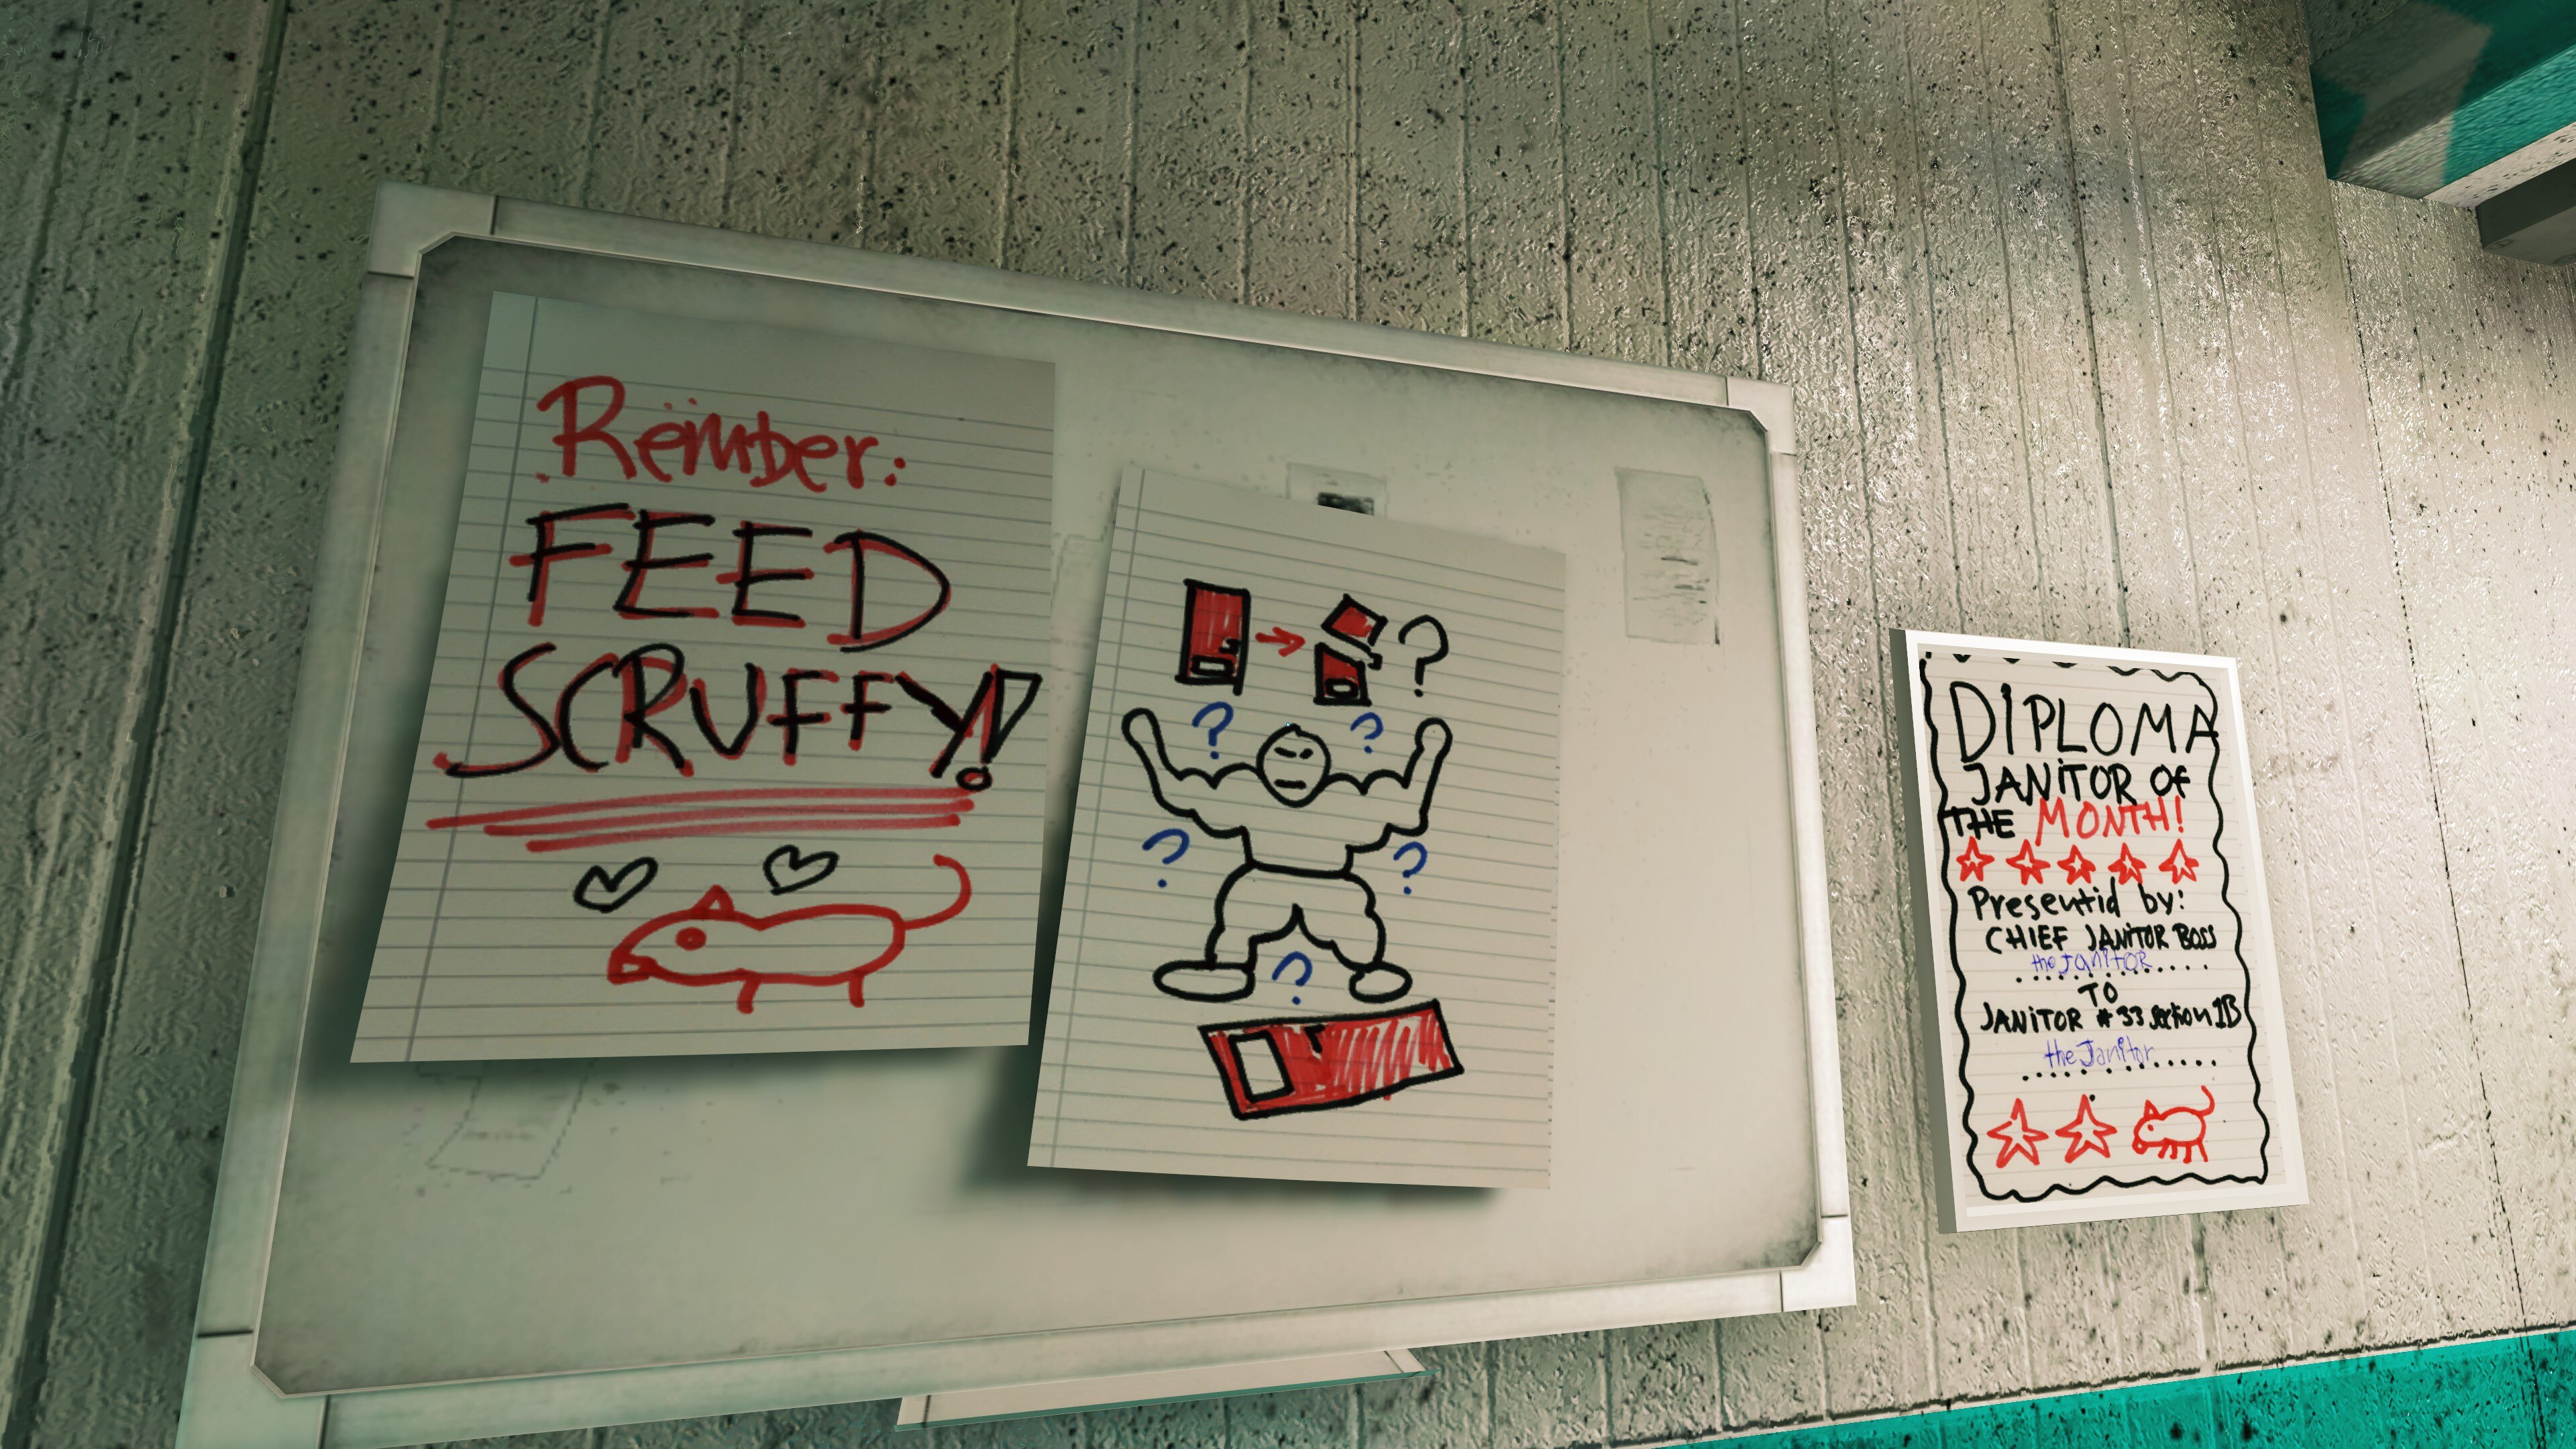 Rember:
FEED
SCRUFFY!
?
? ?
? ?
?
DIPLOMA
JANITOR OF
THE MONTH!
Presentid by:
CHIEF JANITOR BOSS
the JanitOR
TO
JANITOR # 33 section 1B
the Janitor